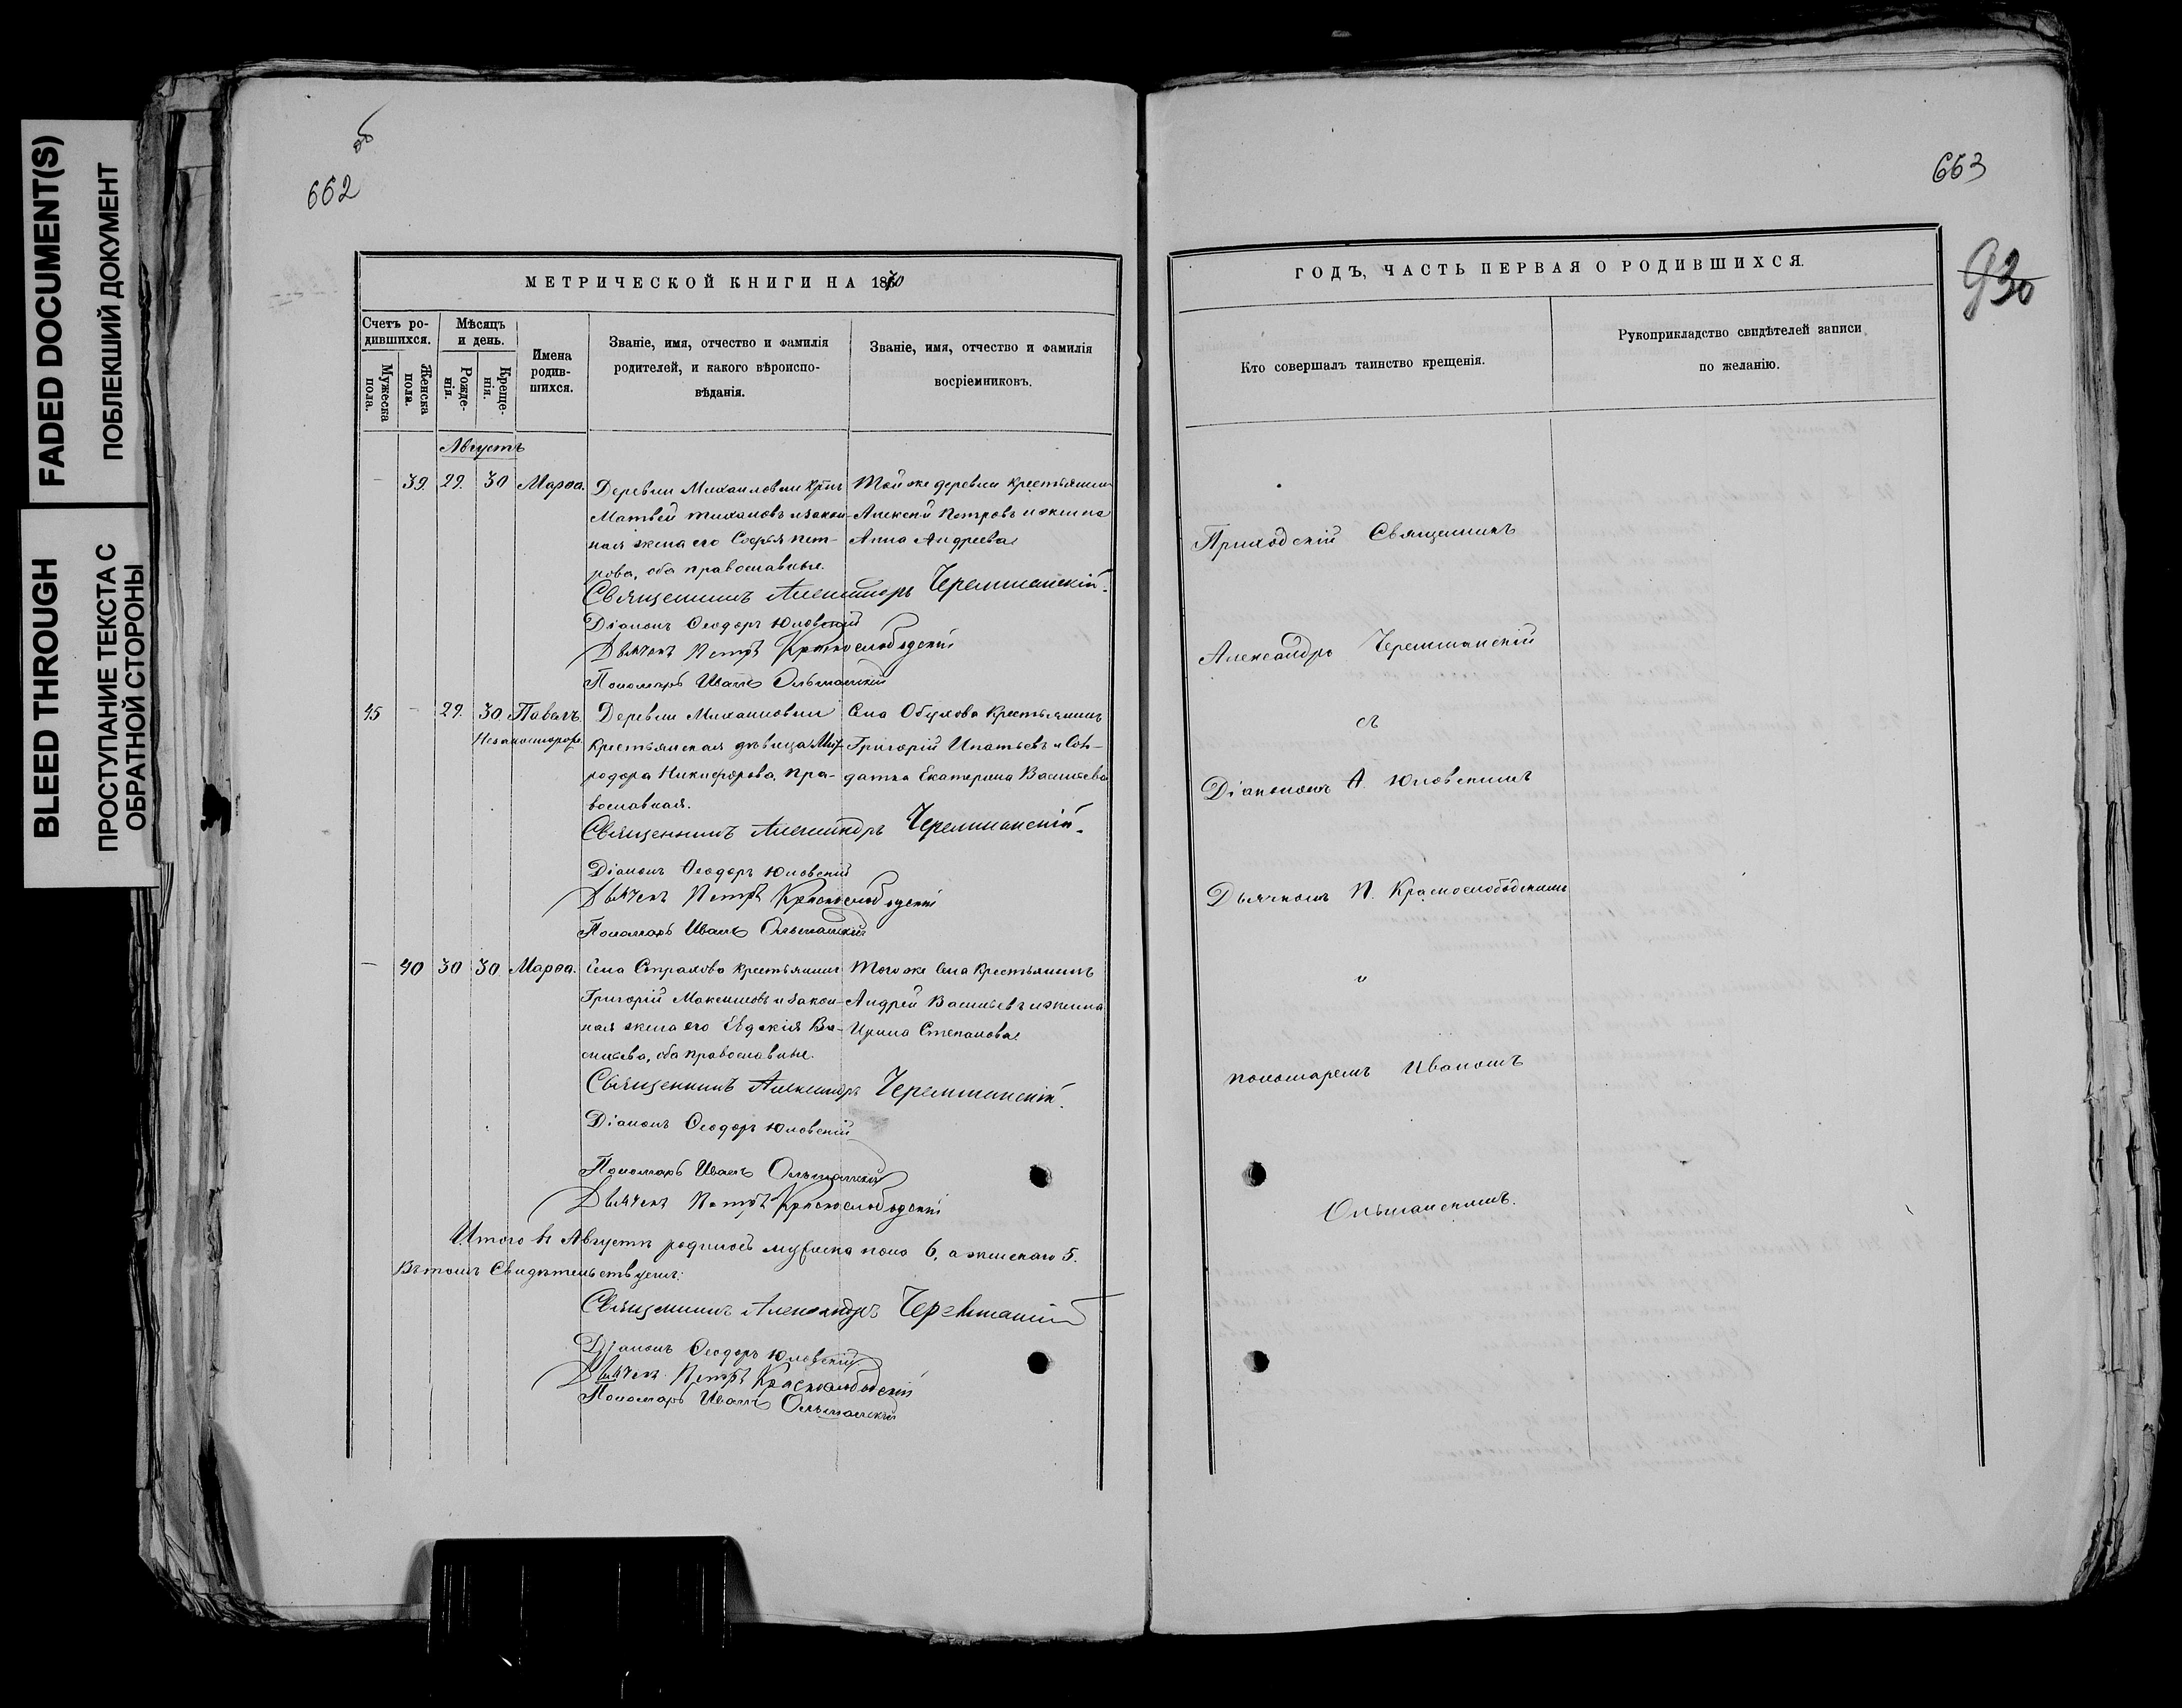 FADED DOCUMENT(S)
ПОБЛЕКШИЙ ДОКУМЕНТ
BLEED THROUGH
ПРОСТУПАНИЕ ТЕКСТА С
ОБРАТНОЙ СТОРОНЫ
662
МЕТРИЧЕСКОЙ КНИГИ НА 1870
Счетъ ро-
дившихся.
Мужеска
пола.
Женска
пола.
Мѣсяцъ
и день.
Рожде-
нія.
Креще-
нія.
Имена
родив-
шихся.
Званіе, имя, отчество и фамилія
родителей, и какого вѣроиспо-
вѣданія.
Званіе, имя, отчество и фамилія
воспріемниковъ.
Августъ
— 39. 29. 30 Марѳа.
Деревни Михаиловки
Матвей и закон-
ная жена его Софья Пет-
рова, оба православные.
Той же деревни Крестьянинъ
Алексей Петровъ и жена
Анна Андреева
Священникъ Александръ Черемшанскій.
Діаконъ Ѳеодоръ Юловскій
Дьячекъ Петръ Краснослободскій
Пономарь Иванъ Ольшанскій
45 — 29. 30. Павелъ.
Незаконнорож.
Деревни Михаиловки
Крестьянская девица Мит-
родора Никифорова, пра-
вославная.
Села Обухова Крестьянинъ
Григорій Игнатьевъ и Сол-
датка Екатерина Васильева
Священникъ Александръ Черемшанскій.
Діаконъ Ѳеодоръ Юловскій
Дьячекъ Петръ Краснослободскій
Пономарь Иванъ Ольшанскій
— 40 30 30. Марѳа.
Села Страхова Крестьянинъ
Григорій Максимовъ и закон-
ная жена его Евдокія Ва-
сильева, оба православные.
Того же Села Крестьянинъ
Андрей Васильевъ и жена
Ирина Степанова
Священникъ Александръ Черемшанскій.
Діаконъ Ѳеодоръ Юловскій
Пономарь Иванъ Ольшанскій
Дьячекъ Петръ Краснослободскій
Итого въ Августѣ родилось мужеска пола 6, а женскаго 5.
Въ томъ Свидѣтельствуемъ:
Священникъ Александръ Черемшанскій
Діаконъ Ѳеодоръ Юловскій
Дьячекъ Петръ Краснослободскій
Пономарь Иванъ Ольшанскій
663
930
ГОДЪ, ЧАСТЬ ПЕРВАЯ О РОДИВШИХСЯ.
Кто совершалъ таинство крещенія.
Рукоприкладство свидѣтелей записи
по желанію.
Приходскій Священникъ
Александръ Черемшанскій
съ
Діакономъ Ѳ. Юловскимъ
Дьячкомъ П. Краснослободскимъ
и
пономаремъ Иваномъ
Ольшанскимъ.